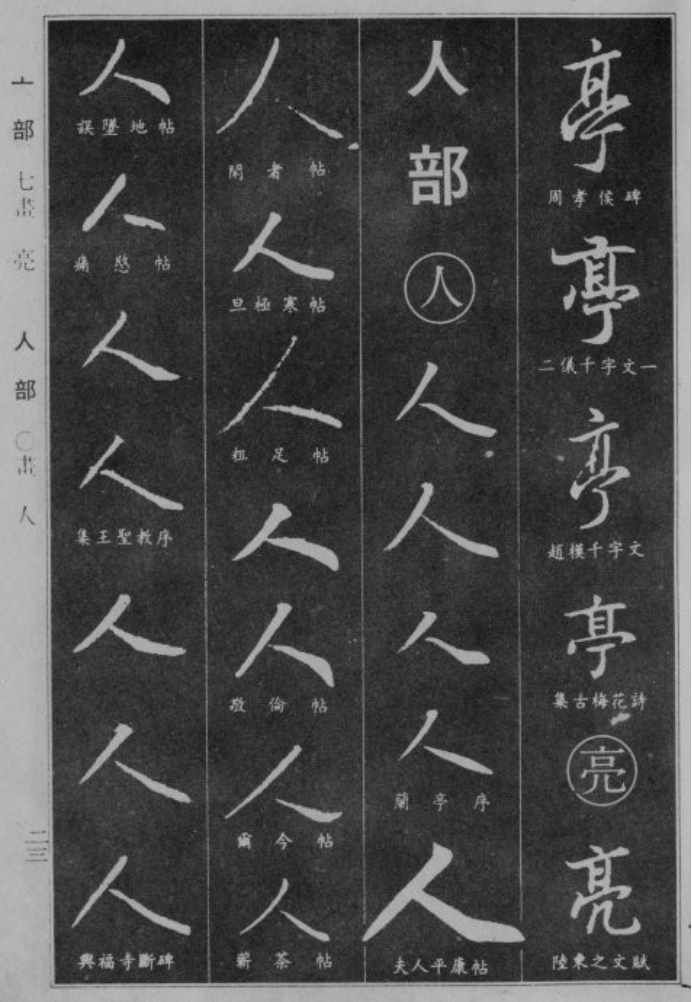 亭
周孝侯碑
亭
二儀千字文一
亭
趙模千字文
亭
集古梅花詩
亮
亮
陸柬之文賦
人部
人
人
人
人
人
蘭亭序
人
夫人平康帖
人
闊者帖
人
旦極寒帖
人
粗足帖
人
人
敬倫帖
人
爾今帖
人
蘄茶帖
人
誤墜地帖
人
痛愍帖
人
人
集王聖教序
人
人
人
興福寺斷碑
亠部 七畫 亮 人部 〇畫 人
二三